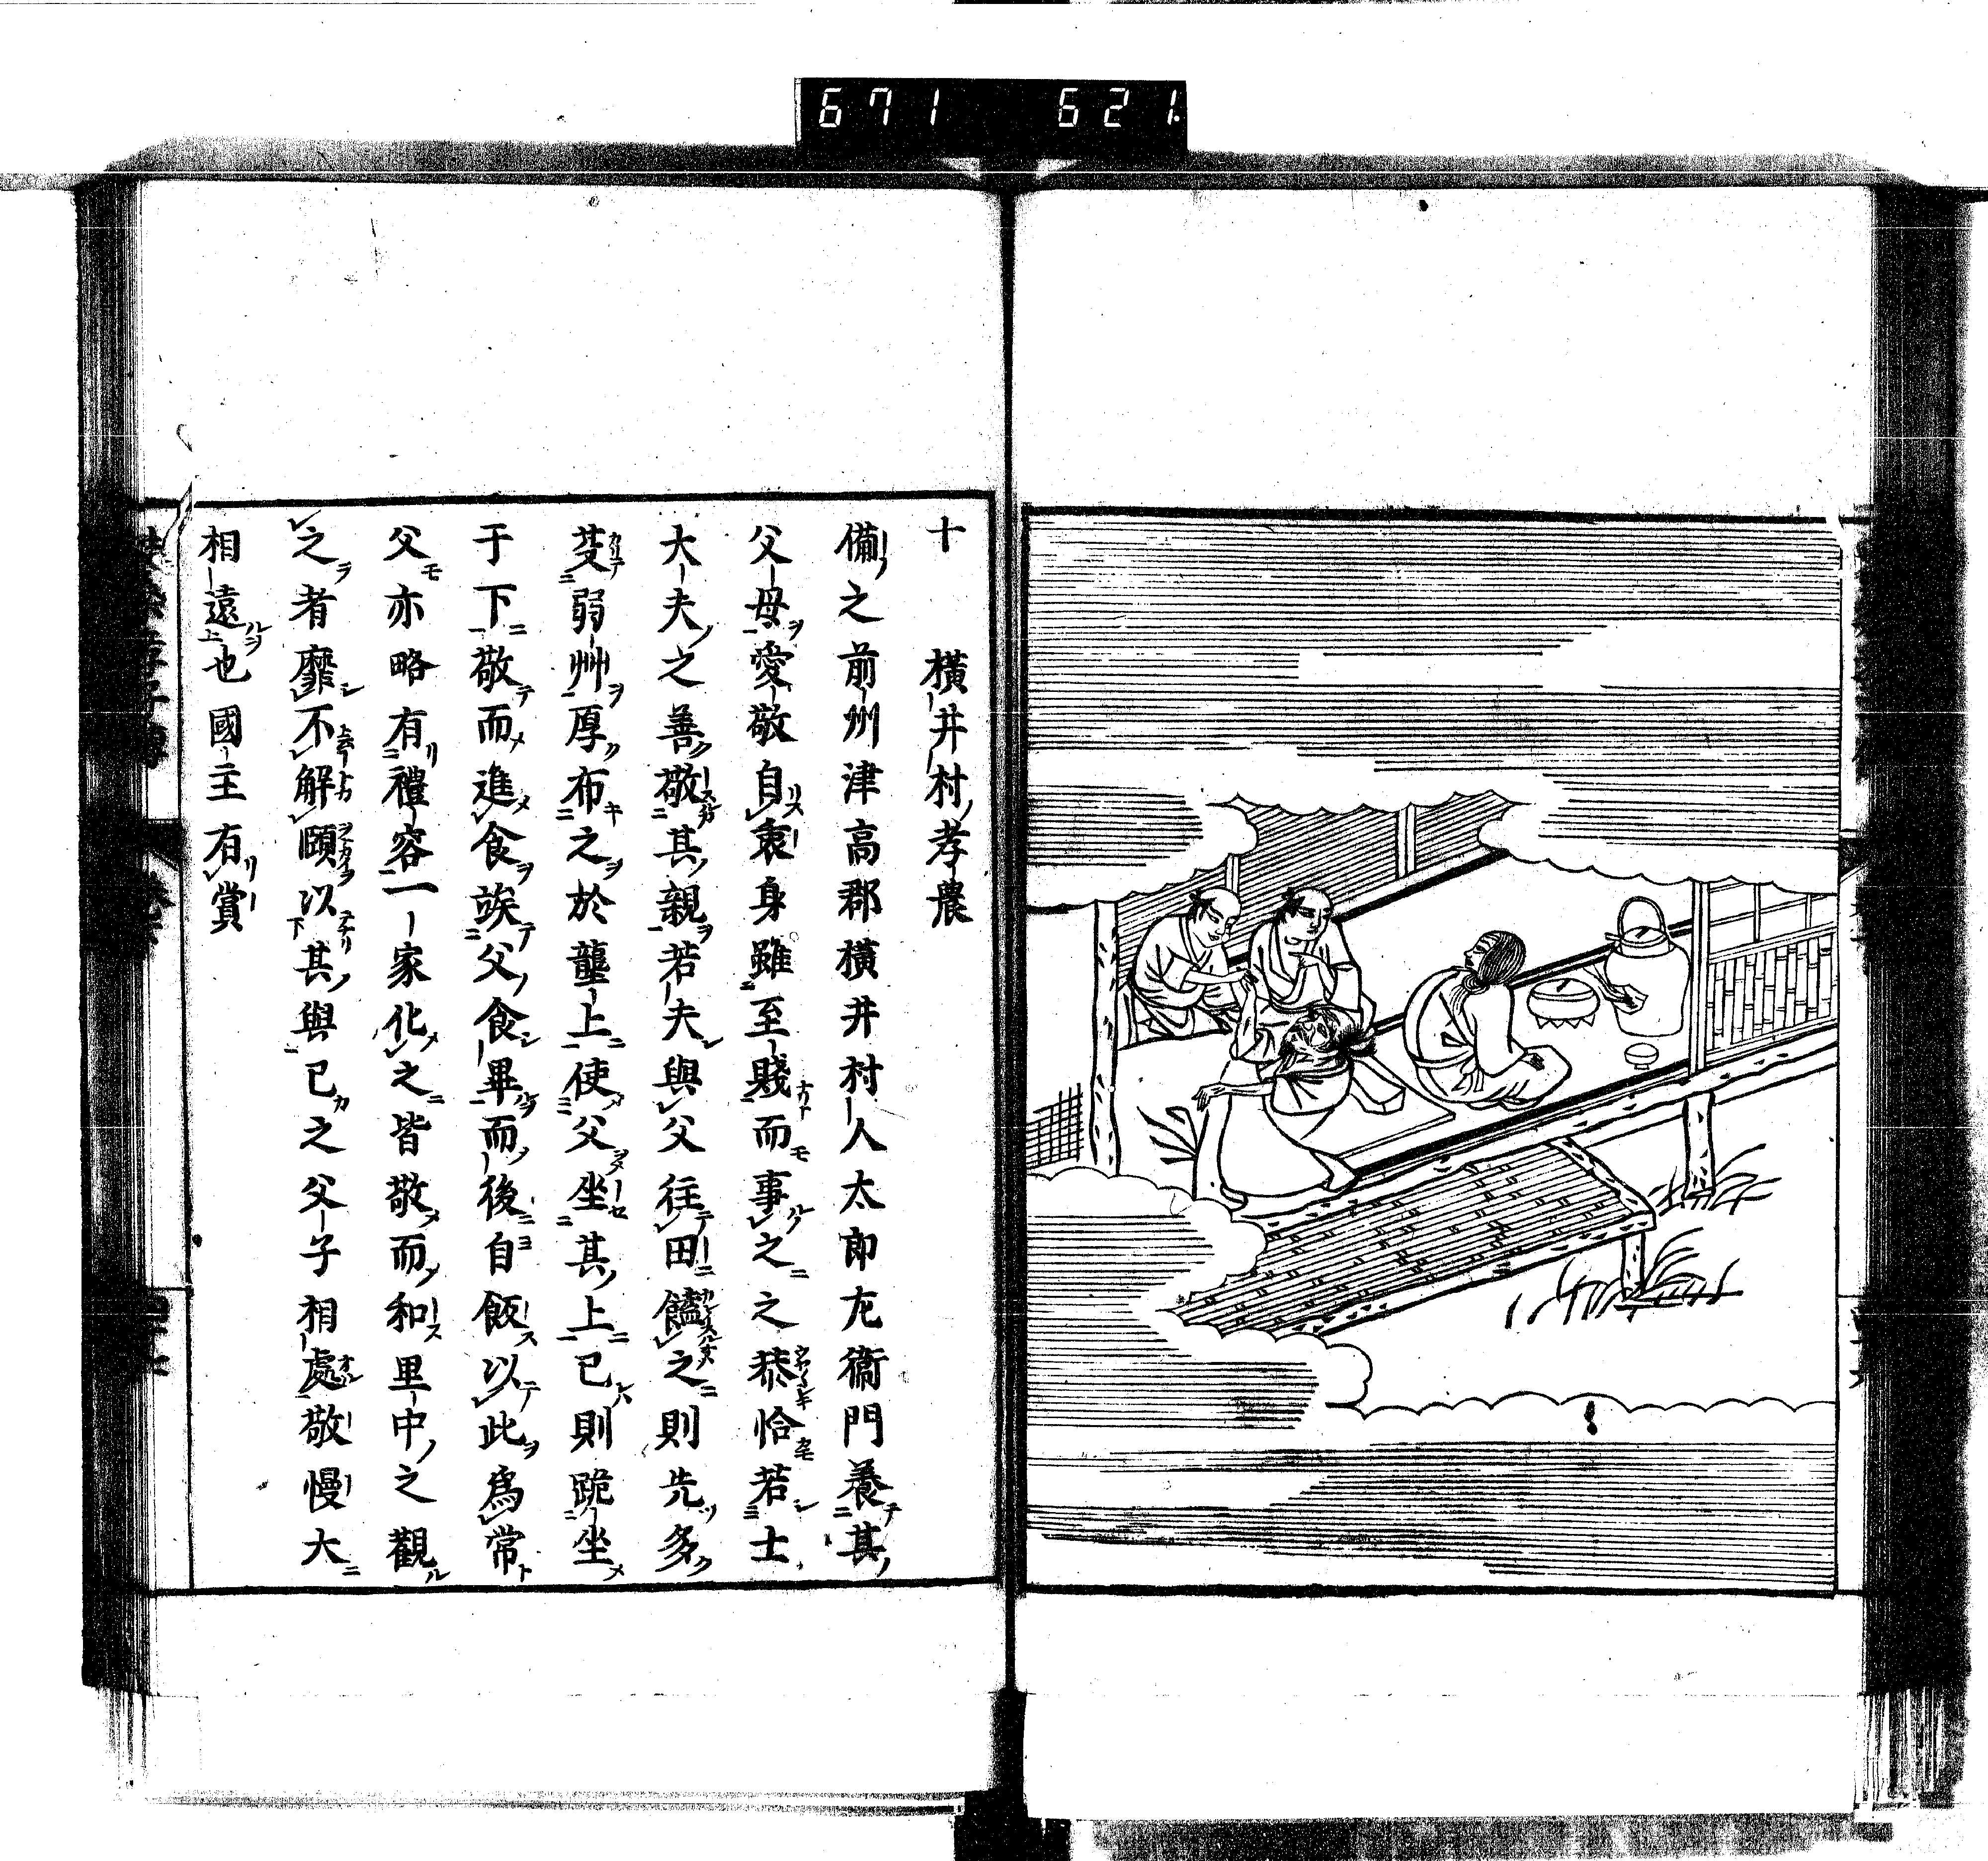 671 621
十 橫井村孝農
備之前州津高郡橫井村人太郎尢衞門養其
父母愛敬自衷身雖至賤而事之之恭恰若士
大夫之善敬其親若夫與父往田饁之則先多
芟弱艸厚布之於壟上使父坐其上已則跪坐
于下敬而進食竢父食畢而後自飯以此爲常
父亦略有禮容一家化之皆敬而和里中之觀
之者靡不解頤以其與已之父子相處敬慢大
相遠也國主有賞